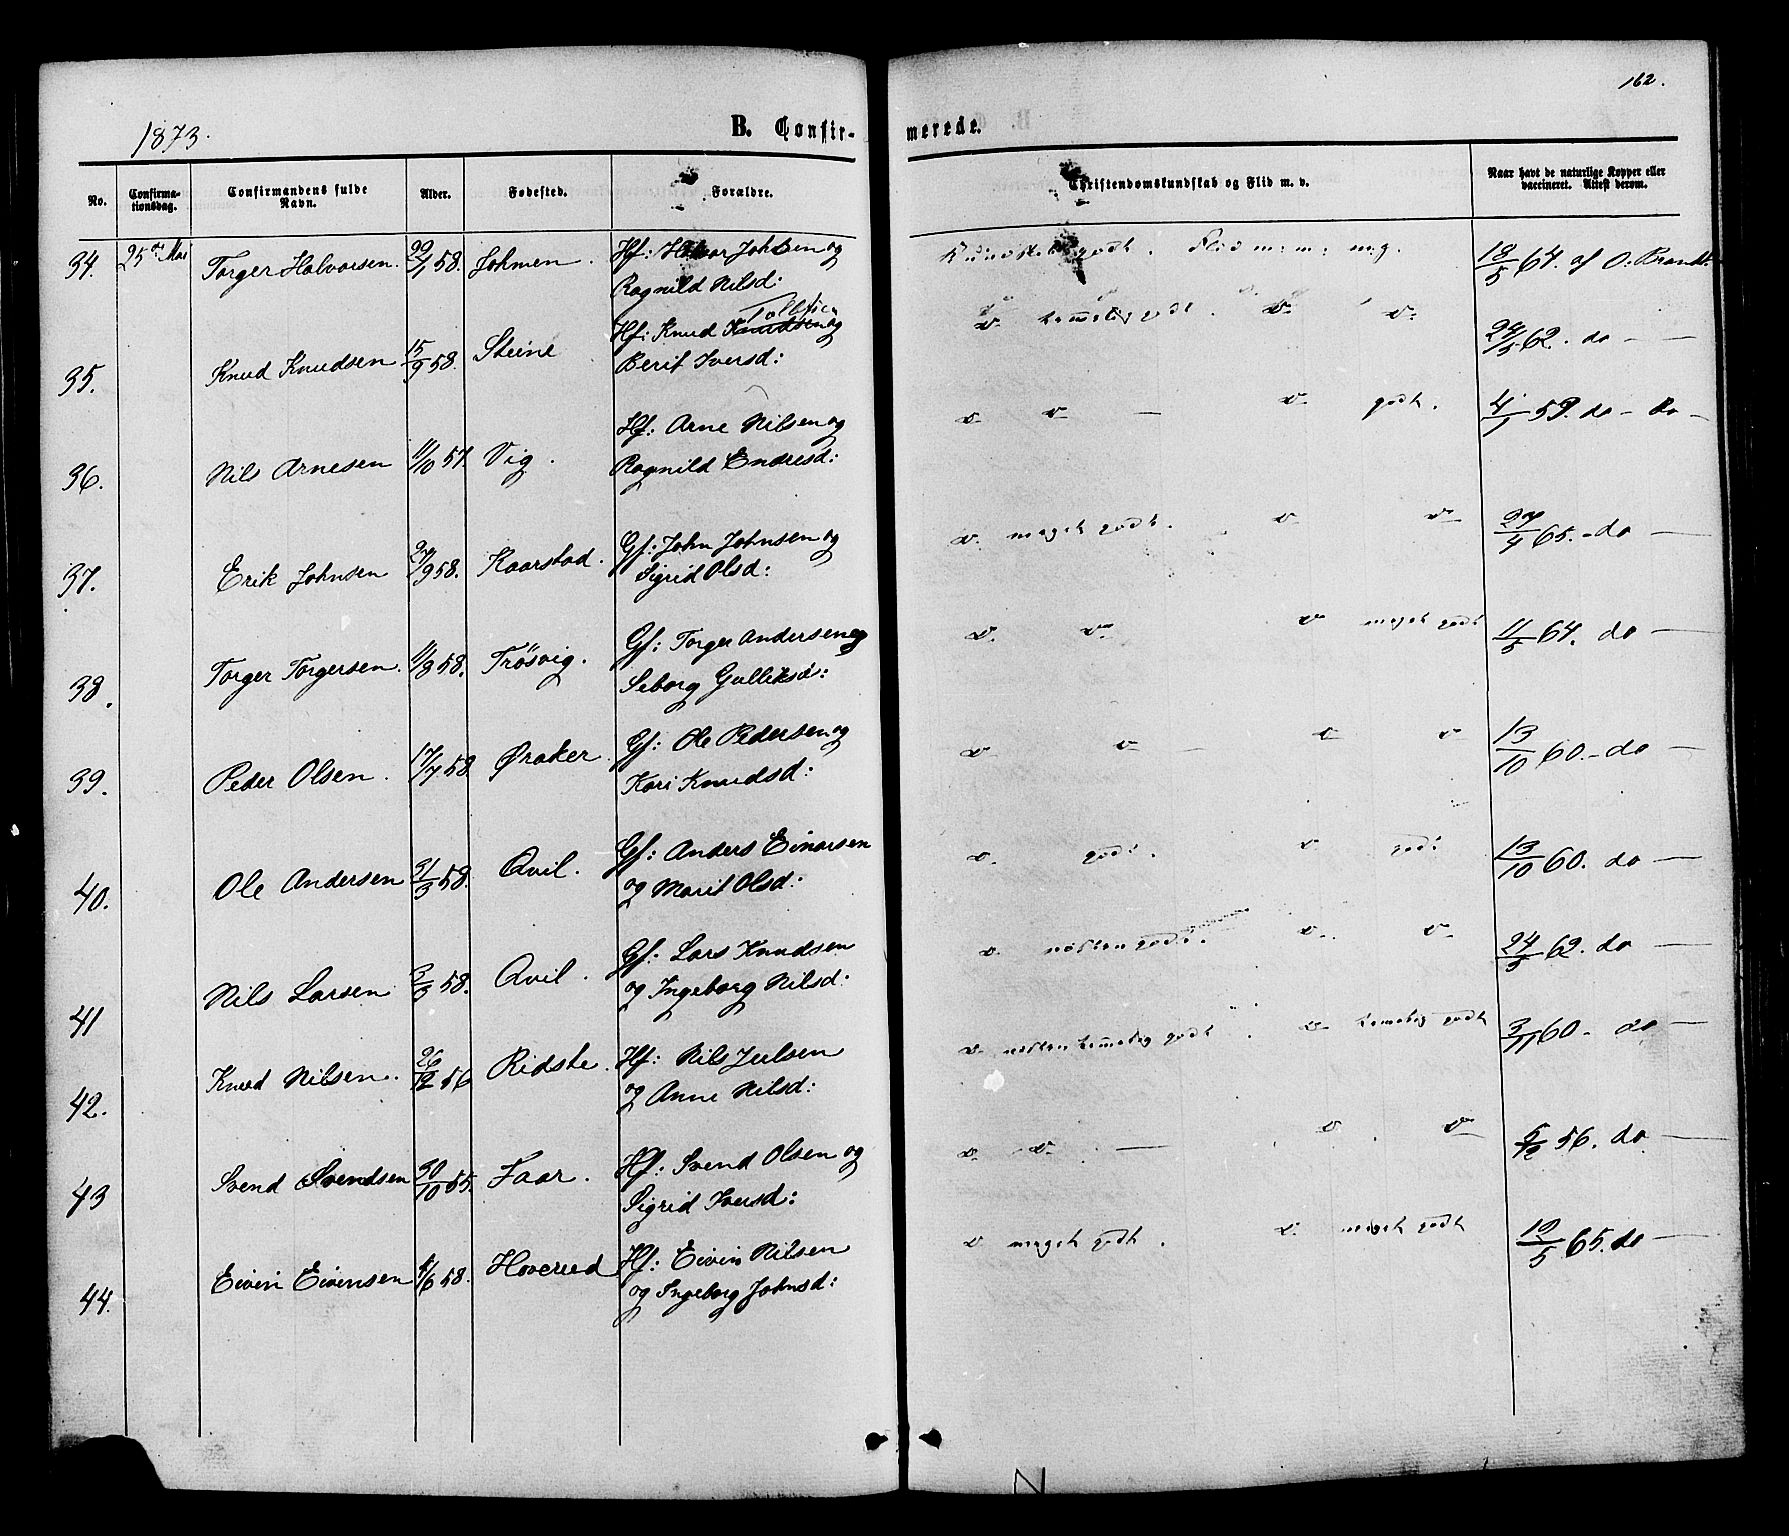 162.
1873.
B. Confir-
merede.
No.
Confirma-
tionsdag.
Confirmandens fulde
Navn.
Alder.
Fødested.
Forældre.
Christendomskundskab og Flid m. v.
Naar havt de naturlige Kopper eller
vaccineret. Attest derom.
34. 25de Mai Torger Halvorsen. 22/1 58. Hf: Halvor Johnsen og
Ragnild Nilsd:
Kundskab godt. Flid 18/5 64. af O. Brandt.
35. Knud Knudsen 15/9 58. Steine Hf: Knud Knudsen Tollefsen og
Berit Iversd:
v. temmelig godt. v. v. 24/5 62. do — —
36. Nils Arnesen 11/10 57. Vig. Hf: Arne Nilsen og
Ragnild Endresd:
v. v. — v. godt. 4/1 59. do — do —
37. Erik Johnsen 27/9 58. Kaarstad. Gf: John Johnsen og
Sigrid Olsd:
v. meget godt. v. v. 27/4 65. - do —
38. Torger Torgersen. 11/8 58. Trösvig. Gf: Torger Andersen og
Seborg Gulliksd:
v. v. v. meget godt 11/5 64. do —
39. Peder Olsen. 17/7 58 Øraker. Gf: Ole Pedersen og
Kari Knudsd:
v. v — v v 13/10 60. - do —
40. Ole Andersen 31/3 58. Qvil. Gf: Anders Einarsen
og Marit Olsd:
v. godt. v godt 13/10 60. do —
41 Nils Larsen 3/3 58. Qvil. Gf: Lars Knudsen
og Ingeborg Nilsd:
v. næsten godt. v. v. 24/5 62. do —
42. Knud Nilsen. 26/12 56 Ridste. Hf: Nils Juulsen
og Anne Nilsd:
v. næsten temmelig godt. v. temmelig godt 3/11 60 - do —
43 Svend Svendsen 30/10 55. Faar. Hf: Svend Olsen og
Sigrid Iversd:
v. v. — v. v. 56. do —
44. Eivin Eivensen 58. Hoverud Hf: Eivin Nilsen
og Ingeborg Johnsd:
v meget godt. v. meget godt 12/5 65. do —
N